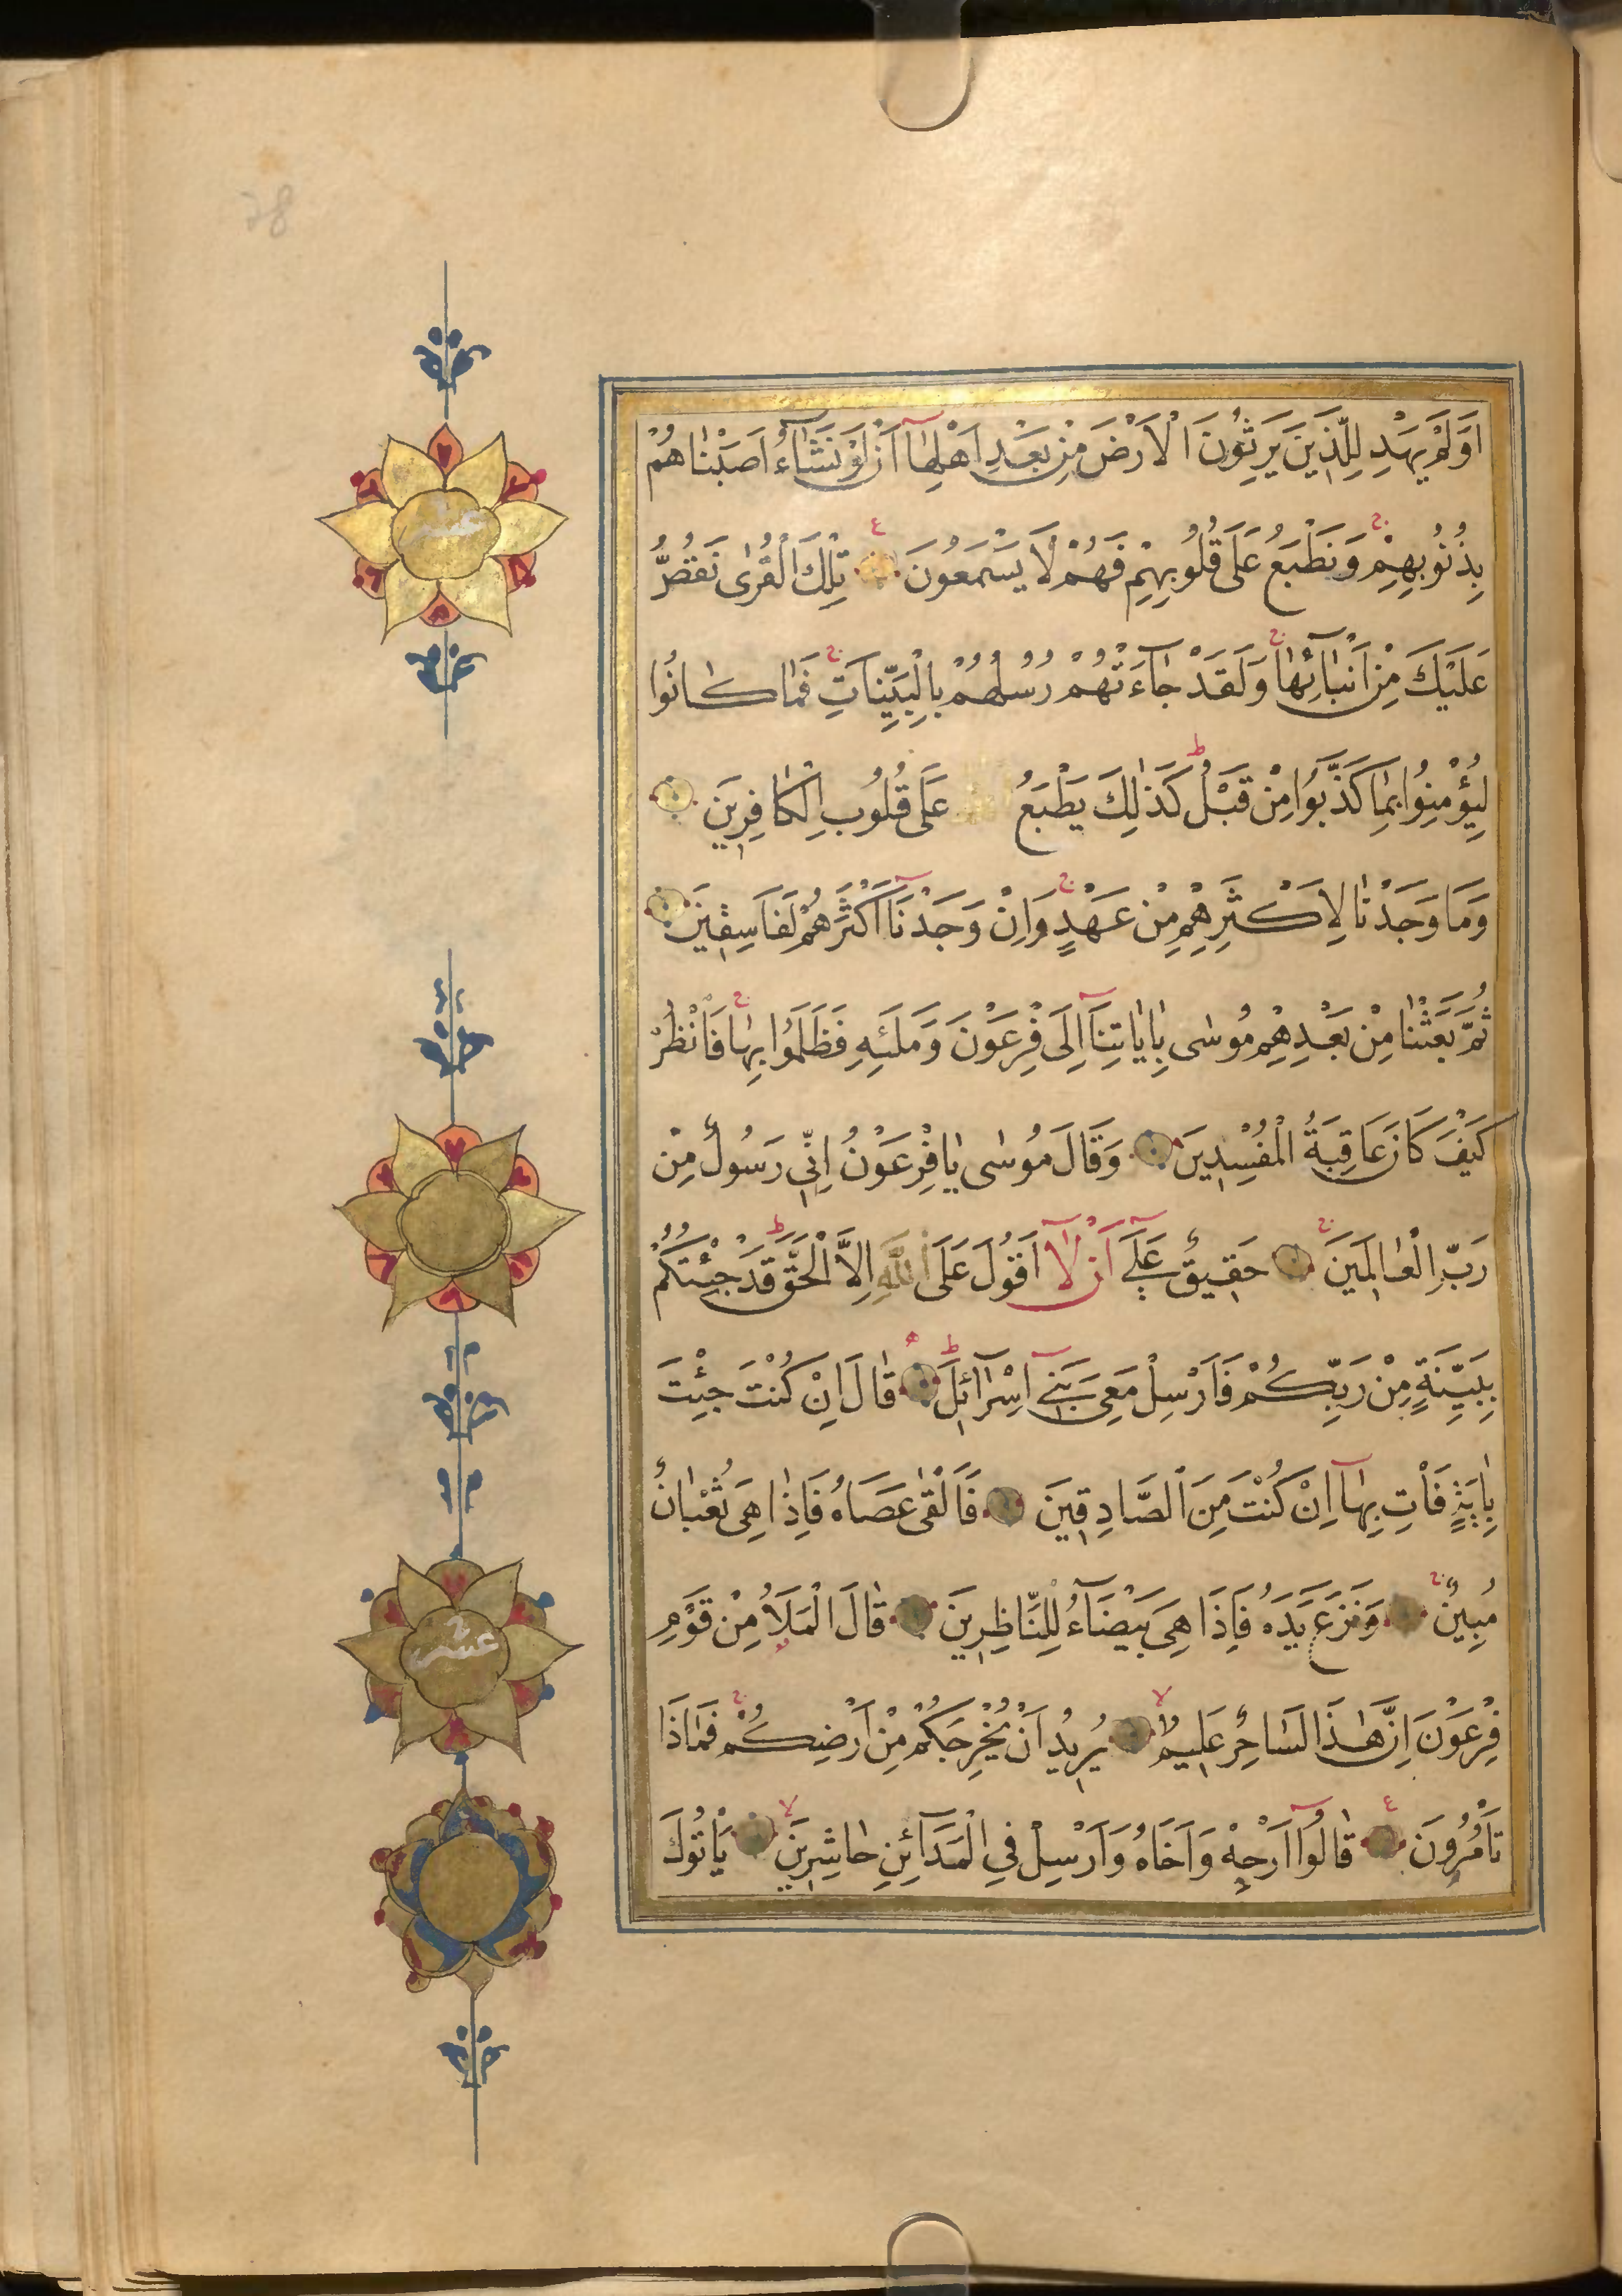 اَوَلَمْ يَهْدِ لِلَّذِينَ يَرِثُونَ الْاَرْضَ مِنْ بَعْدِ اَهْلِهَٓا اَنْ لَوْ نَشَٓاءُ اَصَبْنَاهُمْ
بِذُنُوبِهِمْ ج وَنَطْبَعُ عَلَى قُلُوبِهِمْ فَهُمْ لَا يَسْمَعُونَ ع تِلْكَ الْقُرٰى نَقُصُّ
عَلَيْكَ مِنْ اَنْبَٓائِهَا ج وَلَقَدْ جَٓاءَتْهُمْ رُسُلُهُمْ بِالْبَيِّنَاتِ ج فَمَا كَانُوا
لِيُؤْمِنُوا بِمَا كَذَّبُوا مِنْ قَبْلُ ط كَذٰلِكَ يَطْبَعُ اللّٰهُ عَلَى قُلُوبِ الْكَافِرِينَ
وَمَا وَجَدْنَا لِاَكْثَرِهِمْ مِنْ عَهْدٍ ج وَاِنْ وَجَدْنَٓا اَكْثَرَهُمْ لَفَاسِقِينَ
ثُمَّ بَعَثْنَا مِنْ بَعْدِهِمْ مُوسٰى بِاٰيَاتِنَٓا اِلَى فِرْعَوْنَ وَمَلَئِهِ فَظَلَمُوا بِهَا ج فَانْظُرْ
كَيْفَ كَانَ عَاقِبَةُ الْمُفْسِدِينَ وَقَالَ مُوسٰى يَا فِرْعَوْنُ اِنِّي رَسُولٌ مِنْ
رَبِّ الْعَالَمِينَ ج حَقِيقٌ عَلَٓى اَنْ لَٓا اَقُولَ عَلَى اللّٰهِ اِلَّا الْحَقَّ ط قَدْ جِئْتُكُمْ
بِبَيِّنَةٍ مِنْ رَبِّكُمْ فَاَرْسِلْ مَعِيَ بَنِٓي اِسْرَٓائِلَ ط قَالَ اِنْ كُنْتَ جِئْتَ
بِاٰيَةٍ فَأْتِ بِهَٓا اِنْ كُنْتَ مِنَ الصَّادِقِينَ فَاَلْقٰى عَصَاهُ فَاِذَا هِيَ ثُعْبَانٌ
مُبِينٌ ج وَنَزَعَ يَدَهُ فَاِذَا هِيَ بَيْضَٓاءُ لِلنَّاظِرِينَ قَالَ الْمَلَاُ مِنْ قَوْمِ
فِرْعَوْنَ اِنَّ هٰذَا لَسَاحِرٌ عَلِيمٌ لا يُرِيدُ اَنْ يُخْرِجَكُمْ مِنْ اَرْضِكُمْ ج فَمَاذَا
تَأْمُرُونَ ع قَالُٓوا اَرْجِهْ وَاَخَاهُ وَاَرْسِلْ فِي الْمَدَٓائِنِ حَاشِرِينَ لا يَأْتُوكَ
عشر
عشر